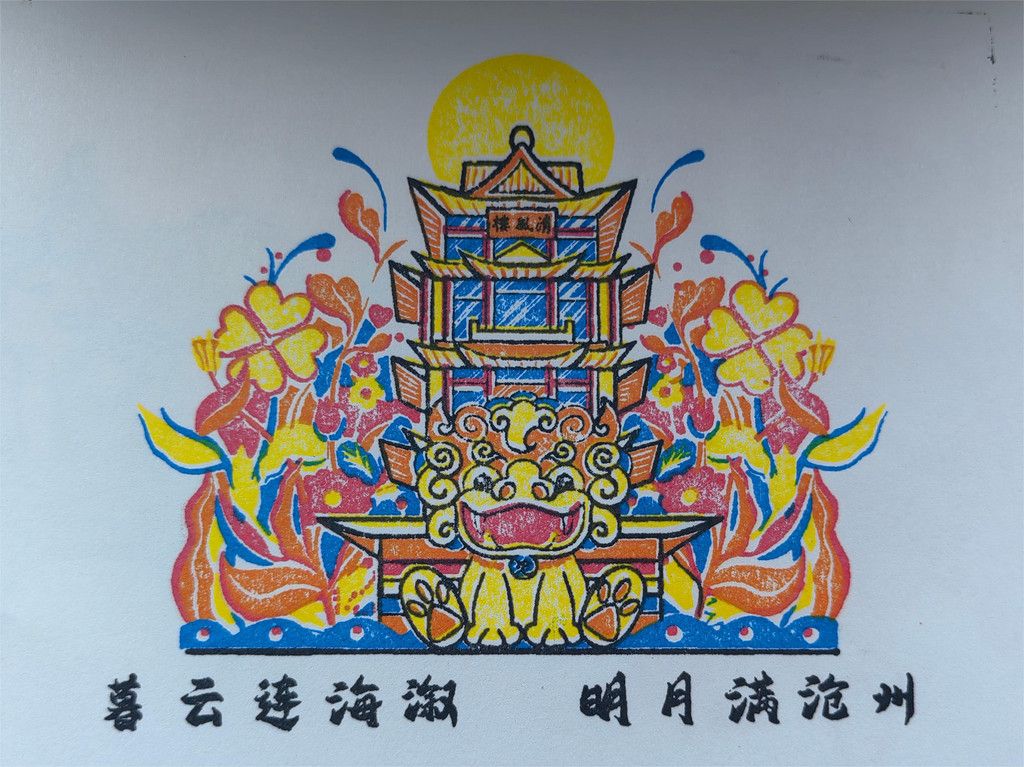 清風樓
暮云连海溆 明月满沧州